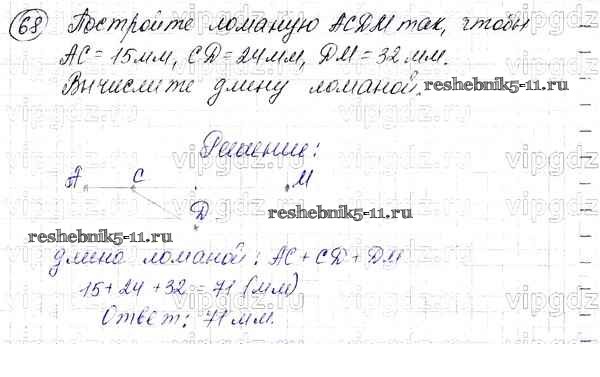 68 Постройте ломаную ACDM так, чтобы
AC = 15 мм, CD = 24 мм, DM = 32 мм.
Вычислите длину ломаной.
reshebnik5-11.ru
Решение:
A C M
D
reshebnik5-11.ru
reshebnik5-11.ru
длина ломаной: AC + CD + DM
15 + 24 + 32 = 71 (мм)
Ответ: 71 мм.